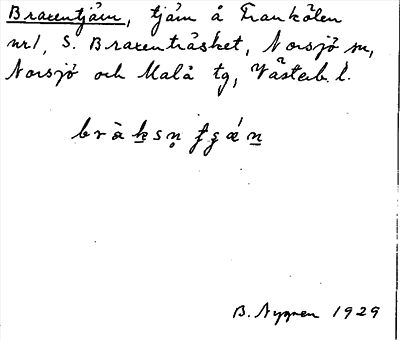 Braxentjärn, tjärn å Frankälen
nr 1, S. Braxenträsket, Norsjö sn,
Norsjö och Malå tg, Västerb. l.
B. Nygren 1929